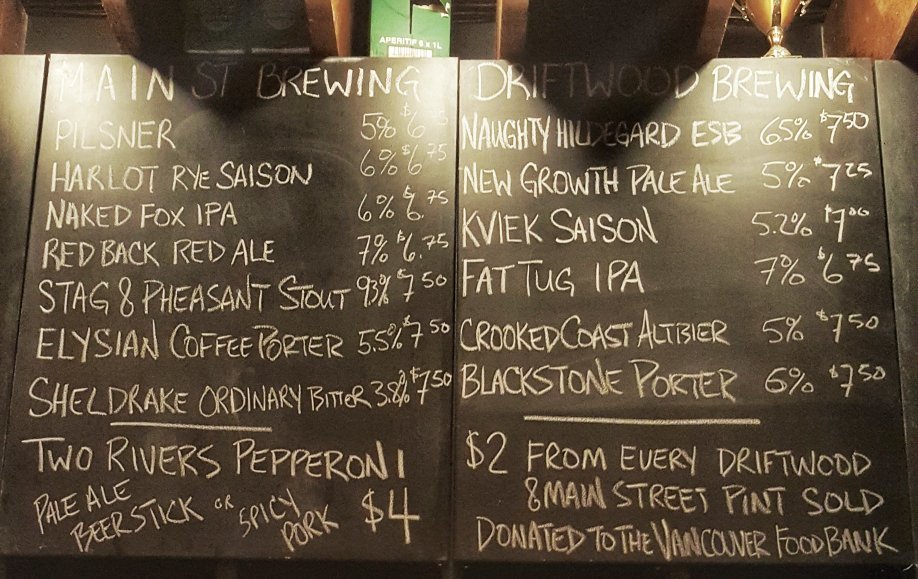 APERITIF 6 x 1L
MAIN ST BREWING
PILSNER 5% $6
HARLOT RYE SAISON 6% $6.75
NAKED FOX IPA 6% $6.75
RED BACK RED ALE 7% $6.75
STAG & PHEASANT STOUT 9.3% $7.50
ELYSIAN COFFEE PORTER 5.5% $7.50
SHELDRAKE ORDINARY BITTER 3.8% $7.50
TWO RIVERS PEPPERONI
PALE ALE BEER STICK OR SPICY PORK $4
DRIFTWOOD BREWING
NAUGHTY HILDEGARD ESB 6.5% $7.50
NEW GROWTH PALE ALE 5% $7.25
KVIEK SAISON 5.2% $7.00
FAT TUG IPA 7% $6.75
CROOKED COAST ALTBIER 5% $7.50
BLACKSTONE PORTER 6% $7.50
$2 FROM EVERY DRIFTWOOD
& MAIN STREET PINT SOLD
DONATED TO THE VANCOUVER FOOD BANK